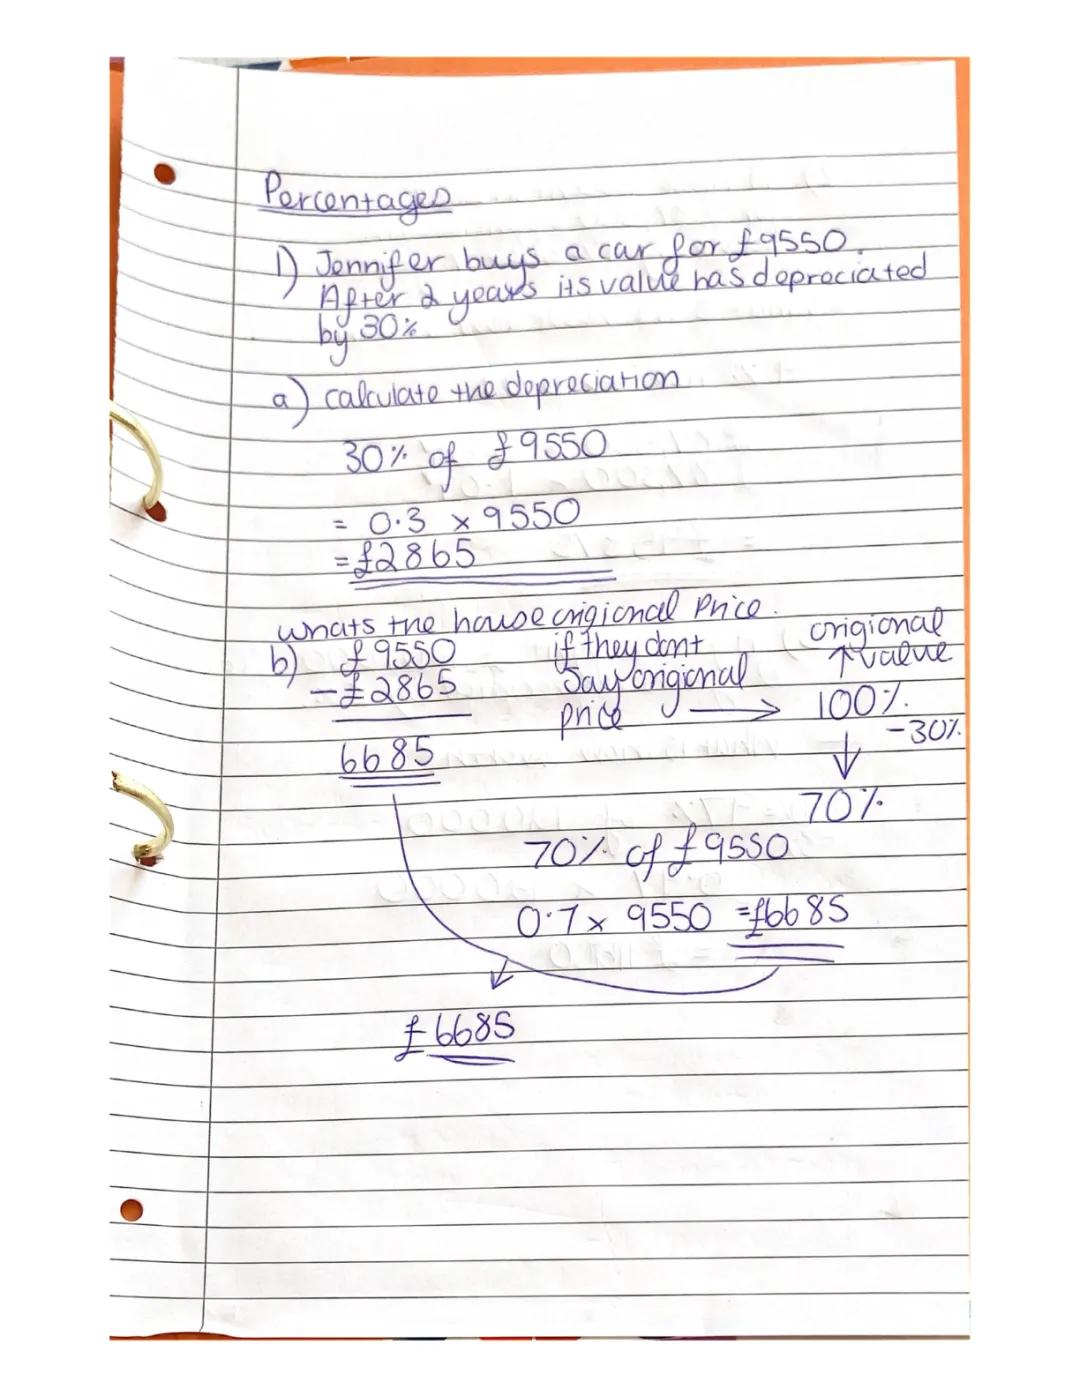 Percentages
1) Jennifer buys a car for £9550.
After 2 years its value has depreciated
by 30%
a) calculate the depreciation
30% of £9550
= 0.3 × 9550
= £2865
whats the house origional Price.
b) £9550
- £2865
6685
if they dont
Say origional
price →
origional
↑ value
100%
-30%
↓
70%
70% of £9550
0.7 × 9550 = £6685
£6685